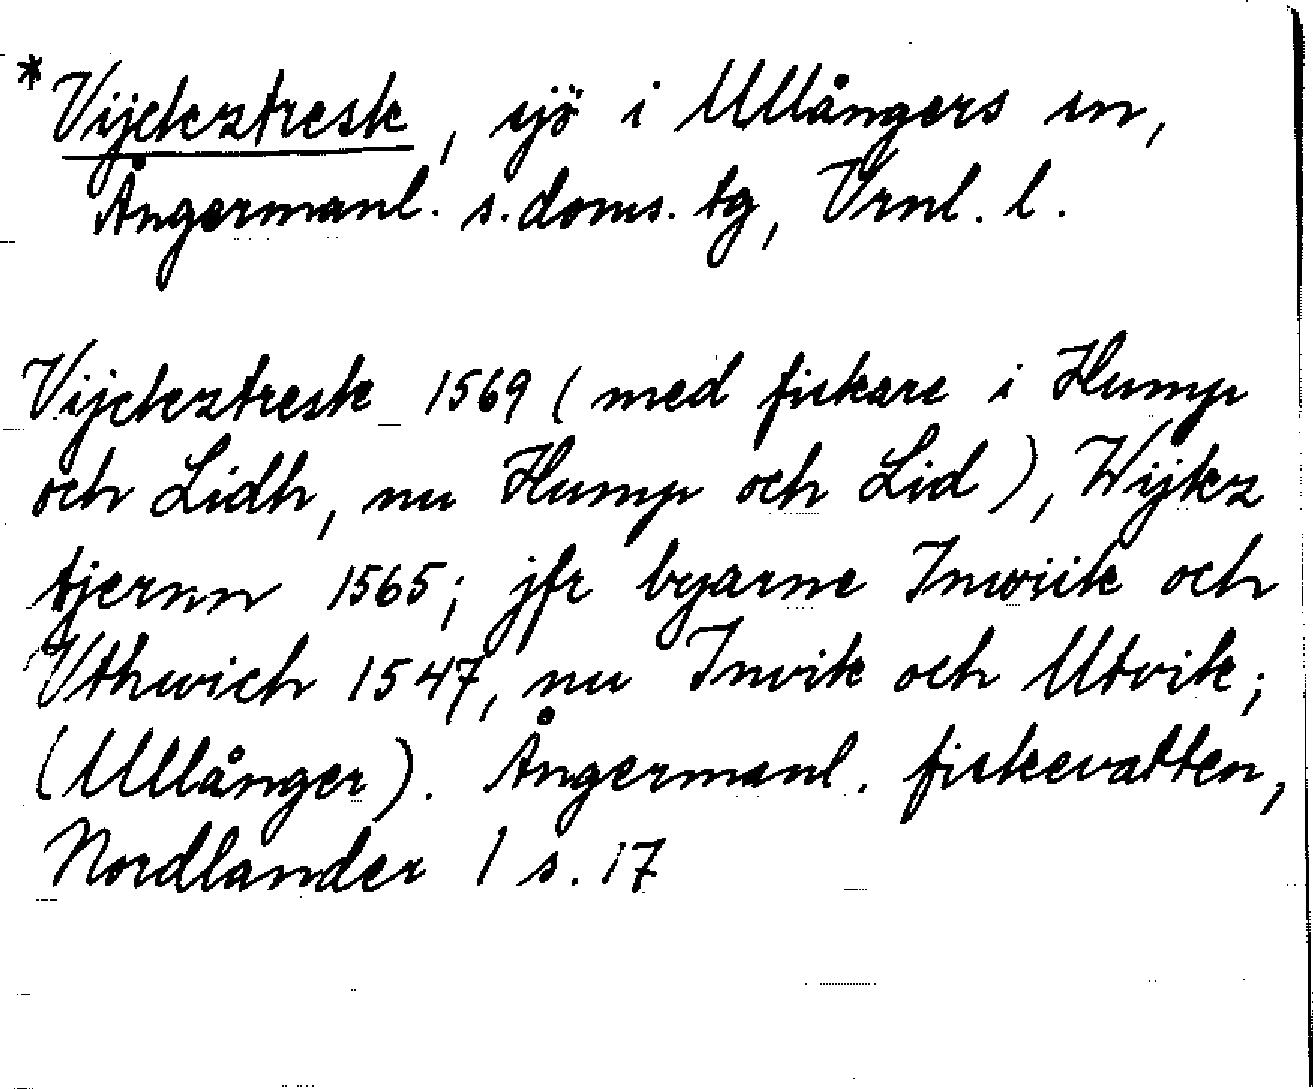 *Vijckztresk, sjö i Ullångers sn,
Ångermanl. s. doms. tg, Vrnl. l.
Vijckztresk 1569 (med fiskare i Hump
och Lidh, nu Hump och Lid), Wijkz
tjernn 1565; jfr byarne Inwiik och
Vthwich 1547, nu Invik och Utvik;
(Ullånger). Ångermanl. fiskevatten,
Nordlander 1 s. 17